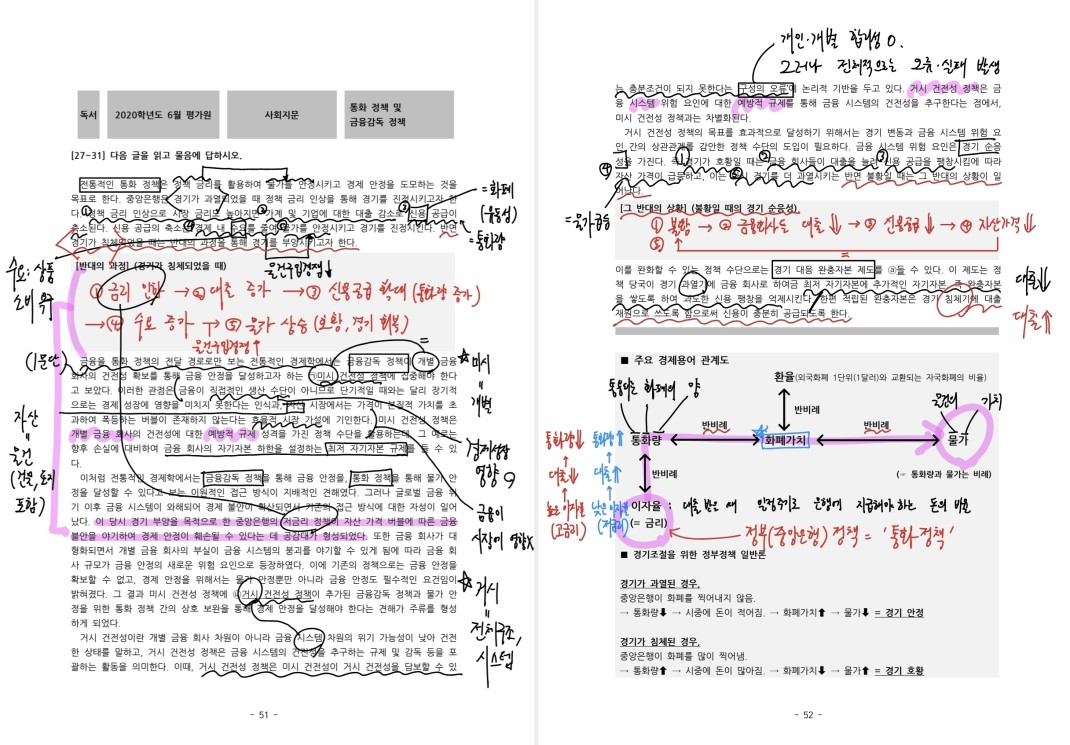 독서
2020학년도 6월 평가원
사회지문
통화 정책 및
금융감독 정책
[27~31] 다음 글을 읽고 물음에 답하시오.
전통적인 통화 정책은 정책 금리를 활용하여 물가를 안정시키고 경제 안정을 도모하는 것을
목표로 한다. 중앙은행은 경기가 과열되었을 때 정책 금리 인상을 통해 경기를 진정시키고자 한
다. 정책 금리 인상으로 시장 금리도 높아지면 가계 및 기업에 대한 대출 감소로 신용 공급이
축소된다. 신용 공급의 축소는 경제 내 수요를 줄여 물가를 안정시키고 경기를 진정시킨다. 반면
경기가 침체되었을 때는 반대의 과정을 통해 경기를 부양시키고자 한다.
= 화폐
(유동성)
= 통화량
물건구입경쟁↓
수요: 상품
소비 욕구
[반대의 과정] (경기가 침체되었을 때)
① 금리 인하 → ② 대출 증가 → ③ 신용공급 확대 (통화량 증가)
→ ④ 수요 증가 → ⑤ 물가 상승 (호황, 경기 회복)
물건구입경쟁↑
(1문단)
금융을 통화 정책의 전달 경로로만 보는 전통적인 경제학에서는 금융감독 정책이 개별 금융
회사의 건전성 확보를 통해 금융 안정을 달성하고자 하는 ㉠미시 건전성 정책에 집중해야 한다
고 보았다. 이러한 관점은 금융이 직접적인 생산 수단이 아니므로 단기적일 때와는 달리 장기적
으로는 경제 성장에 영향을 미치지 못한다는 인식과, 자산 시장에서는 가격이 본질적 가치를 초
과하여 폭등하는 버블이 존재하지 않는다는 효율적 시장 가설에 기인한다. 미시 건전성 정책은
개별 금융 회사의 건전성에 대한 예방적 규제 성격을 가진 정책 수단을 활용하는데, 그 예로는
향후 손실에 대비하여 금융 회사의 자기자본 하한을 설정하는 최저 자기자본 규제를 들 수 있
다.
☆ 미시
=
개별
자산
=
물건
(건물, 토지
포함)
경제성장
영향
금융이
시장에 영향X
이처럼 전통적인 경제학에서는 금융감독 정책을 통해 금융 안정을, 통화 정책을 통해 물가 안
정을 달성할 수 있다고 보는 이원적인 접근 방식이 지배적인 견해였다. 그러나 글로벌 금융 위
기 이후 금융 시스템이 와해되어 경제 불안이 확산되면서 기존의 접근 방식에 대한 자성이 일어
났다. 이 당시 경기 부양을 목적으로 한 중앙은행의 저금리 정책이 자산 가격 버블에 따른 금융
불안을 야기하여 경제 안정이 훼손될 수 있다는 데 공감대가 형성되었다. 또한 금융 회사가 대
형화되면서 개별 금융 회사의 부실이 금융 시스템의 붕괴를 야기할 수 있게 됨에 따라 금융 회
사 규모가 금융 안정의 새로운 위험 요인으로 등장하였다. 이에 기존의 정책으로는 금융 안정을
확보할 수 없고, 경제 안정을 위해서는 물가 안정뿐만 아니라 금융 안정도 필수적인 요건임이
밝혀졌다. 그 결과 미시 건전성 정책에 ㉡거시 건전성 정책이 추가된 금융감독 정책과 물가 안
정을 위한 통화 정책 간의 상호 보완을 통해 경제 안정을 달성해야 한다는 견해가 주류를 형성
하게 되었다.
☆ 거시
=
전체구조,
시스템
거시 건전성이란 개별 금융 회사 차원이 아니라 금융 시스템 차원의 위기 가능성이 낮아 건전
한 상태를 말하고, 거시 건전성 정책은 금융 시스템의 건전성을 추구하는 규제 및 감독 등을 포
괄하는 활동을 의미한다. 이때, 거시 건전성 정책은 미시 건전성이 거시 건전성을 담보할 수 있
- 51 -
개인·개별 합리성 O.
그러나 전체적으로는 오류·실패 발생
는 충분조건이 되지 못한다는 '구성의 오류'에 논리적 기반을 두고 있다. 거시 건전성 정책은 금
융 시스템 위험 요인에 대한 예방적 규제를 통해 금융 시스템의 건전성을 추구한다는 점에서,
미시 건전성 정책과는 차별화된다.
거시 건전성 정책의 목표를 효과적으로 달성하기 위해서는 경기 변동과 금융 시스템 위험 요
인 간의 상관관계를 감안한 정책 수단의 도입이 필요하다. 금융 시스템 위험 요인은 경기 순응
성을 가진다. 즉 경기가 호황일 때는 금융 회사들이 대출을 늘려 신용 공급을 팽창시킴에 따라
자산 가격이 급등하고, 이는 다시 경기를 더 과열시키는 반면 불황일 때는 그 반대의 상황이 일
어난다.
=물가급등
[그 반대의 상황] (불황일 때의 경기 순응성)
① 불황 → ② 금융회사는 대출↓ → ③ 신용공급↓ → ④ 자산가격↓
⑤
이를 완화할 수 있는 정책 수단으로는 경기 대응 완충자본 제도를 ⓐ들 수 있다. 이 제도는 정
책 당국이 경기 과열기에 금융 회사로 하여금 최저 자기자본에 추가적인 자기자본, 즉 완충자본
을 쌓도록 하여 과도한 신용 팽창을 억제시킨다. 한편 적립된 완충자본은 경기 침체기에 대출
재원으로 쓰도록 함으로써 신용이 충분히 공급되도록 한다.
대출↓
대출↑
■ 주요 경제용어 관계도
환율(외국화폐 1단위(1달러)와 교환되는 자국화폐의 비율)
반비례
통용되는 화폐의 양
물건의 가치
통화량
반비례
화폐가치
반비례
물가
(☞ 통화량과 물가는 비례)
반비례
통화량↓
대출↓
높은 이자율
(고금리)
통화량↑
대출↑
낮은 이자율
(저금리)
이자율 : 대출 받은 에 일정주기로 은행에 지급해야하는 돈의 비율
(= 금리)
정부(중앙은행) 정책 = '통화정책'
■ 경기조절을 위한 정부정책 일반론
경기가 과열된 경우,
중앙은행이 화폐를 찍어내지 않음.
→ 통화량⬇ → 시중에 돈이 적어짐. → 화폐가치⬆ → 물가⬇ = 경기 안정
경기가 침체된 경우,
중앙은행이 화폐를 많이 찍어냄.
→ 통화량⬆ → 시중에 돈이 많아짐. → 화폐가치⬇ → 물가⬆ = 경기 호황
- 52 -